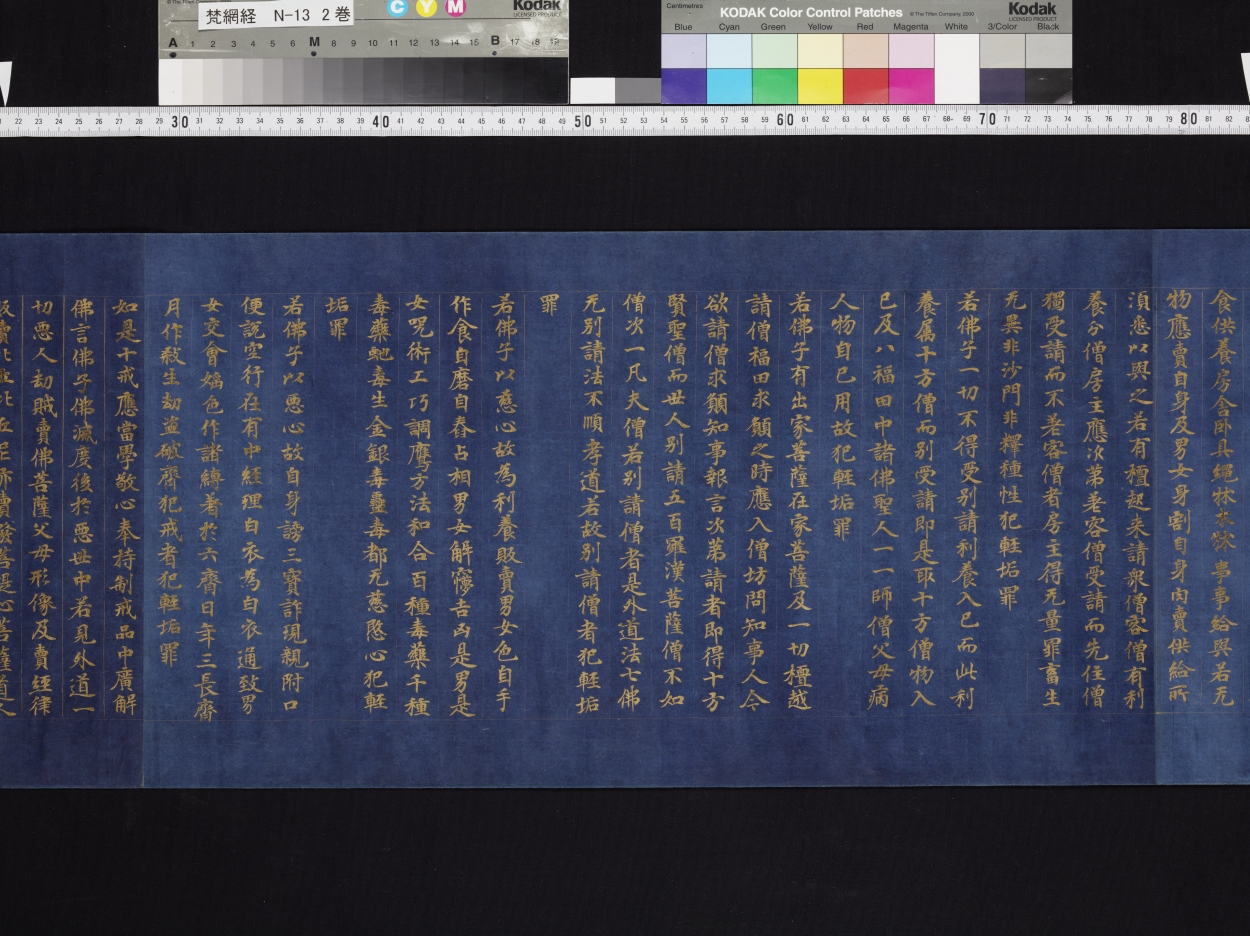 梵網経 N-13 2巻
Kodak
LICENSED PRODUCT
C Y M
A 1 2 3 4 5 6 M 8 9 10 11 12 13 14 15 B 17 18 19
Centimetres
KODAK Color Control Patches
© The Tiffen Company, 2000
Kodak
LICENSED PRODUCT
Blue Cyan Green Yellow Red Magenta White 3/Color Black
22 23 24 25 26 27 28 29 30 31 32 33 34 35 36 37 38 39 40 41 42 43 44 45 46 47 48 49 50 51 52 53 54 55 56 57 58 59 60 61 62 63 64 65 66 67 68 69 70 71 72 73 74 75 76 77 78 79 80 81 82
食供養房舎卧具繩牀木牀事事給與若无
物應賣自身及男女身割自身肉賣供給所
湏悉以與之若有檀越来請衆僧客僧有利
養分僧房主應次第差客僧受請而先住僧
獨受請而不差客僧者房主得无量罪畜生
无異非沙門非釋種性犯輕垢罪
若佛子一切不得受別請利養入己而此利
養属十方僧而別受請即是取十方僧物入
己及八福田中諸佛聖人一一師僧父母病
人物自己用故犯輕垢罪
若佛子有出家菩薩在家菩薩及一切檀越
請僧福田求願之時應入僧坊問知事人今
欲請僧求願知事報言次第請者即得十方
賢聖僧而世人別請五百羅漢菩薩僧不如
僧次一凡夫僧若別請僧者是外道法七佛
无別請法不順孝道若故別請僧者犯輕垢
罪
若佛子以惡心故為利養販賣男女色自手
作食自磨自舂占相男女解夢吉凶是男是
女呪術工巧調鷹方法和合百種毒藥千種
毒藥虵毒生金銀毒蠱毒都无慈愍心犯輕
垢罪
若佛子以悪心故自身謗三寶詐現親附口
便說空行在有中経理白衣為白衣通致男
女交會婬色作諸縛著於六齋日年三長齋
月作殺生劫盗破齋犯戒者犯輕垢罪
如是十戒應當學敬心奉持制戒品中廣解
佛言佛子佛滅度後於悪世中若見外道一
切悪人劫賊賣佛菩薩父母形像及賣経律